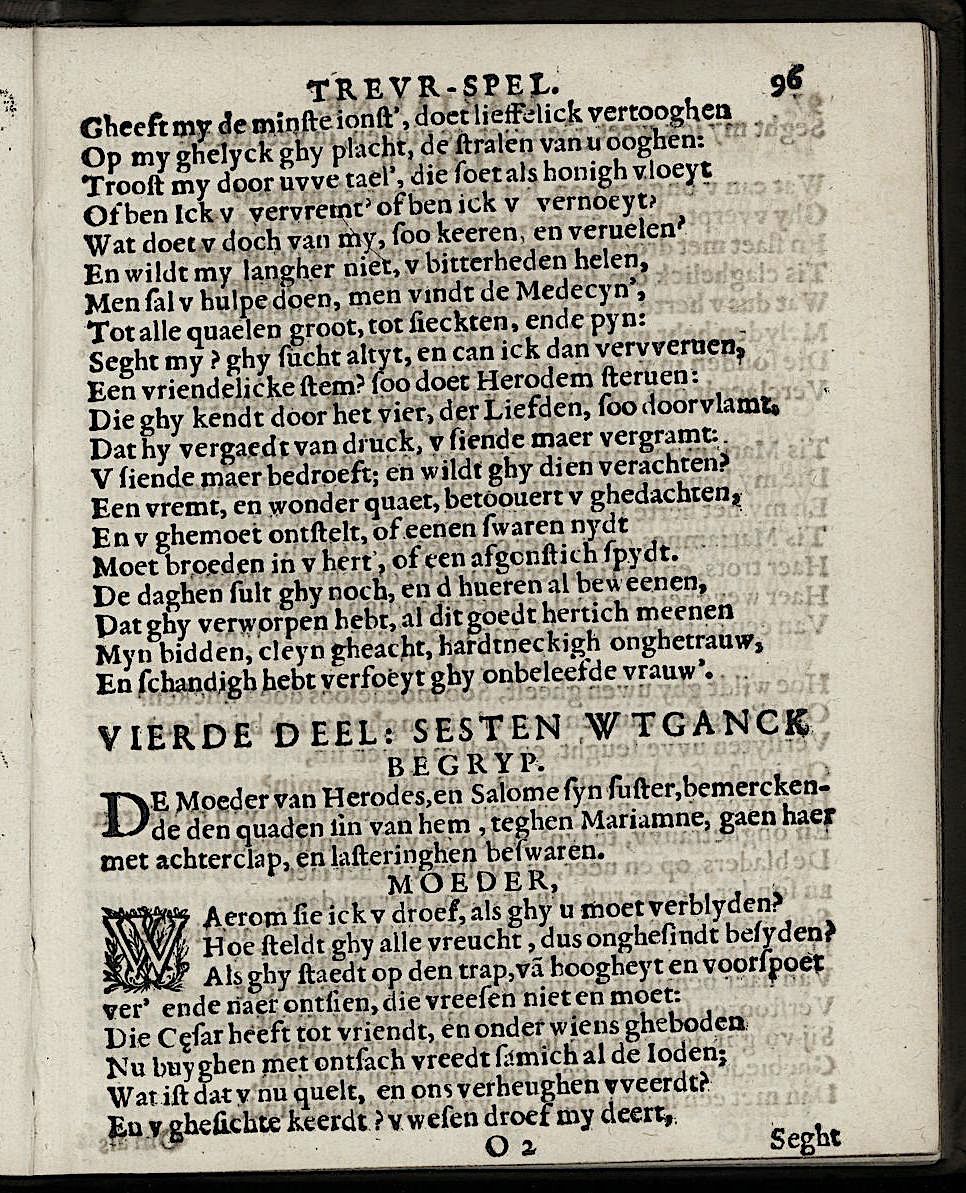 TREVR-SPEL. 96
Gheeft my de minſte ionſt', doet lieffelick vertooghen
Op my ghelyck ghy placht, de ſtralen van u ooghen:
Trooſt my door uvve tael', die ſoet als honigh vloeyt
Of ben Ick v vervremt' of ben ick v vernoeyt?
Wat doet v doch van my, ſoo keeren, en veruelen'
En wildt my langher niet, v bitterheden helen,
Men ſal v hulpe doen, men vindt de Medecyn',
Tot alle quaelen groot, tot ſieckten, ende pyn:
Seght my ? ghy ſucht altyt, en can ick dan vervveruen,
Een vriendelicke ſtem? ſoo doet Herodem ſteruen:
Die ghy kendt door het vier, der Liefden, ſoo doorvlamt,
Dat hy vergaedt van druck, v ſiende maer vergramt:
V ſiende maer bedroeft; en wildt ghy dien verachten?
Een vremt, en wonder quaet, betoouert v ghedachten,
En v ghemoet ontſtelt, of eenen ſwaren nydt
Moet broeden in v hert', of een afgonſtich ſpydt.
De daghen ſult ghy noch, en d hueren al beweenen,
Dat ghy verworpen hebt, al dit goedt hertich meenen
Myn bidden, cleyn gheacht, hardtneckigh onghetrauw,
En ſchandigh hebt verſoeyt ghy onbeleefde vrauw'.
VIERDE DEEL: SESTEN WTGANCK
BEGRYP.
DE Moeder van Herodes, en Salome ſyn ſuſter, bemercken-
de den quaden ſin van hem , teghen Mariamne, gaen haer
met achterclap, en laſteringhen beſwaren.
MOEDER,
WAerom ſie ick v droef, als ghy u moet verblyden?
Hoe ſteldt ghy alle vreucht , dus ongheſindt beſyden?
Als ghy ſtaedt op den trap, vã hoogheyt en voorſpoet
ver' ende naer ontſien, die vreeſen niet en moet:
Die Cęſar heeft tot vriendt, en onder wiens gheboden
Nu buyghen met ontſach vreedt ſamich al de Ioden;
Wat iſt dat v nu quelt, en ons verheughen vveerdt?
En v gheſichte keerdt ? v weſen droef my deert,
O 2 Seght